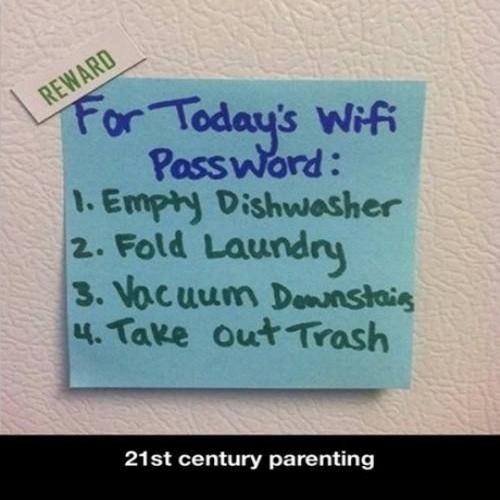 REWARD
For Today's Wifi
Password:
1. Empty Dishwasher
2. Fold Laundry
3. Vacuum Downstairs
4. Take Out Trash
21st century parenting